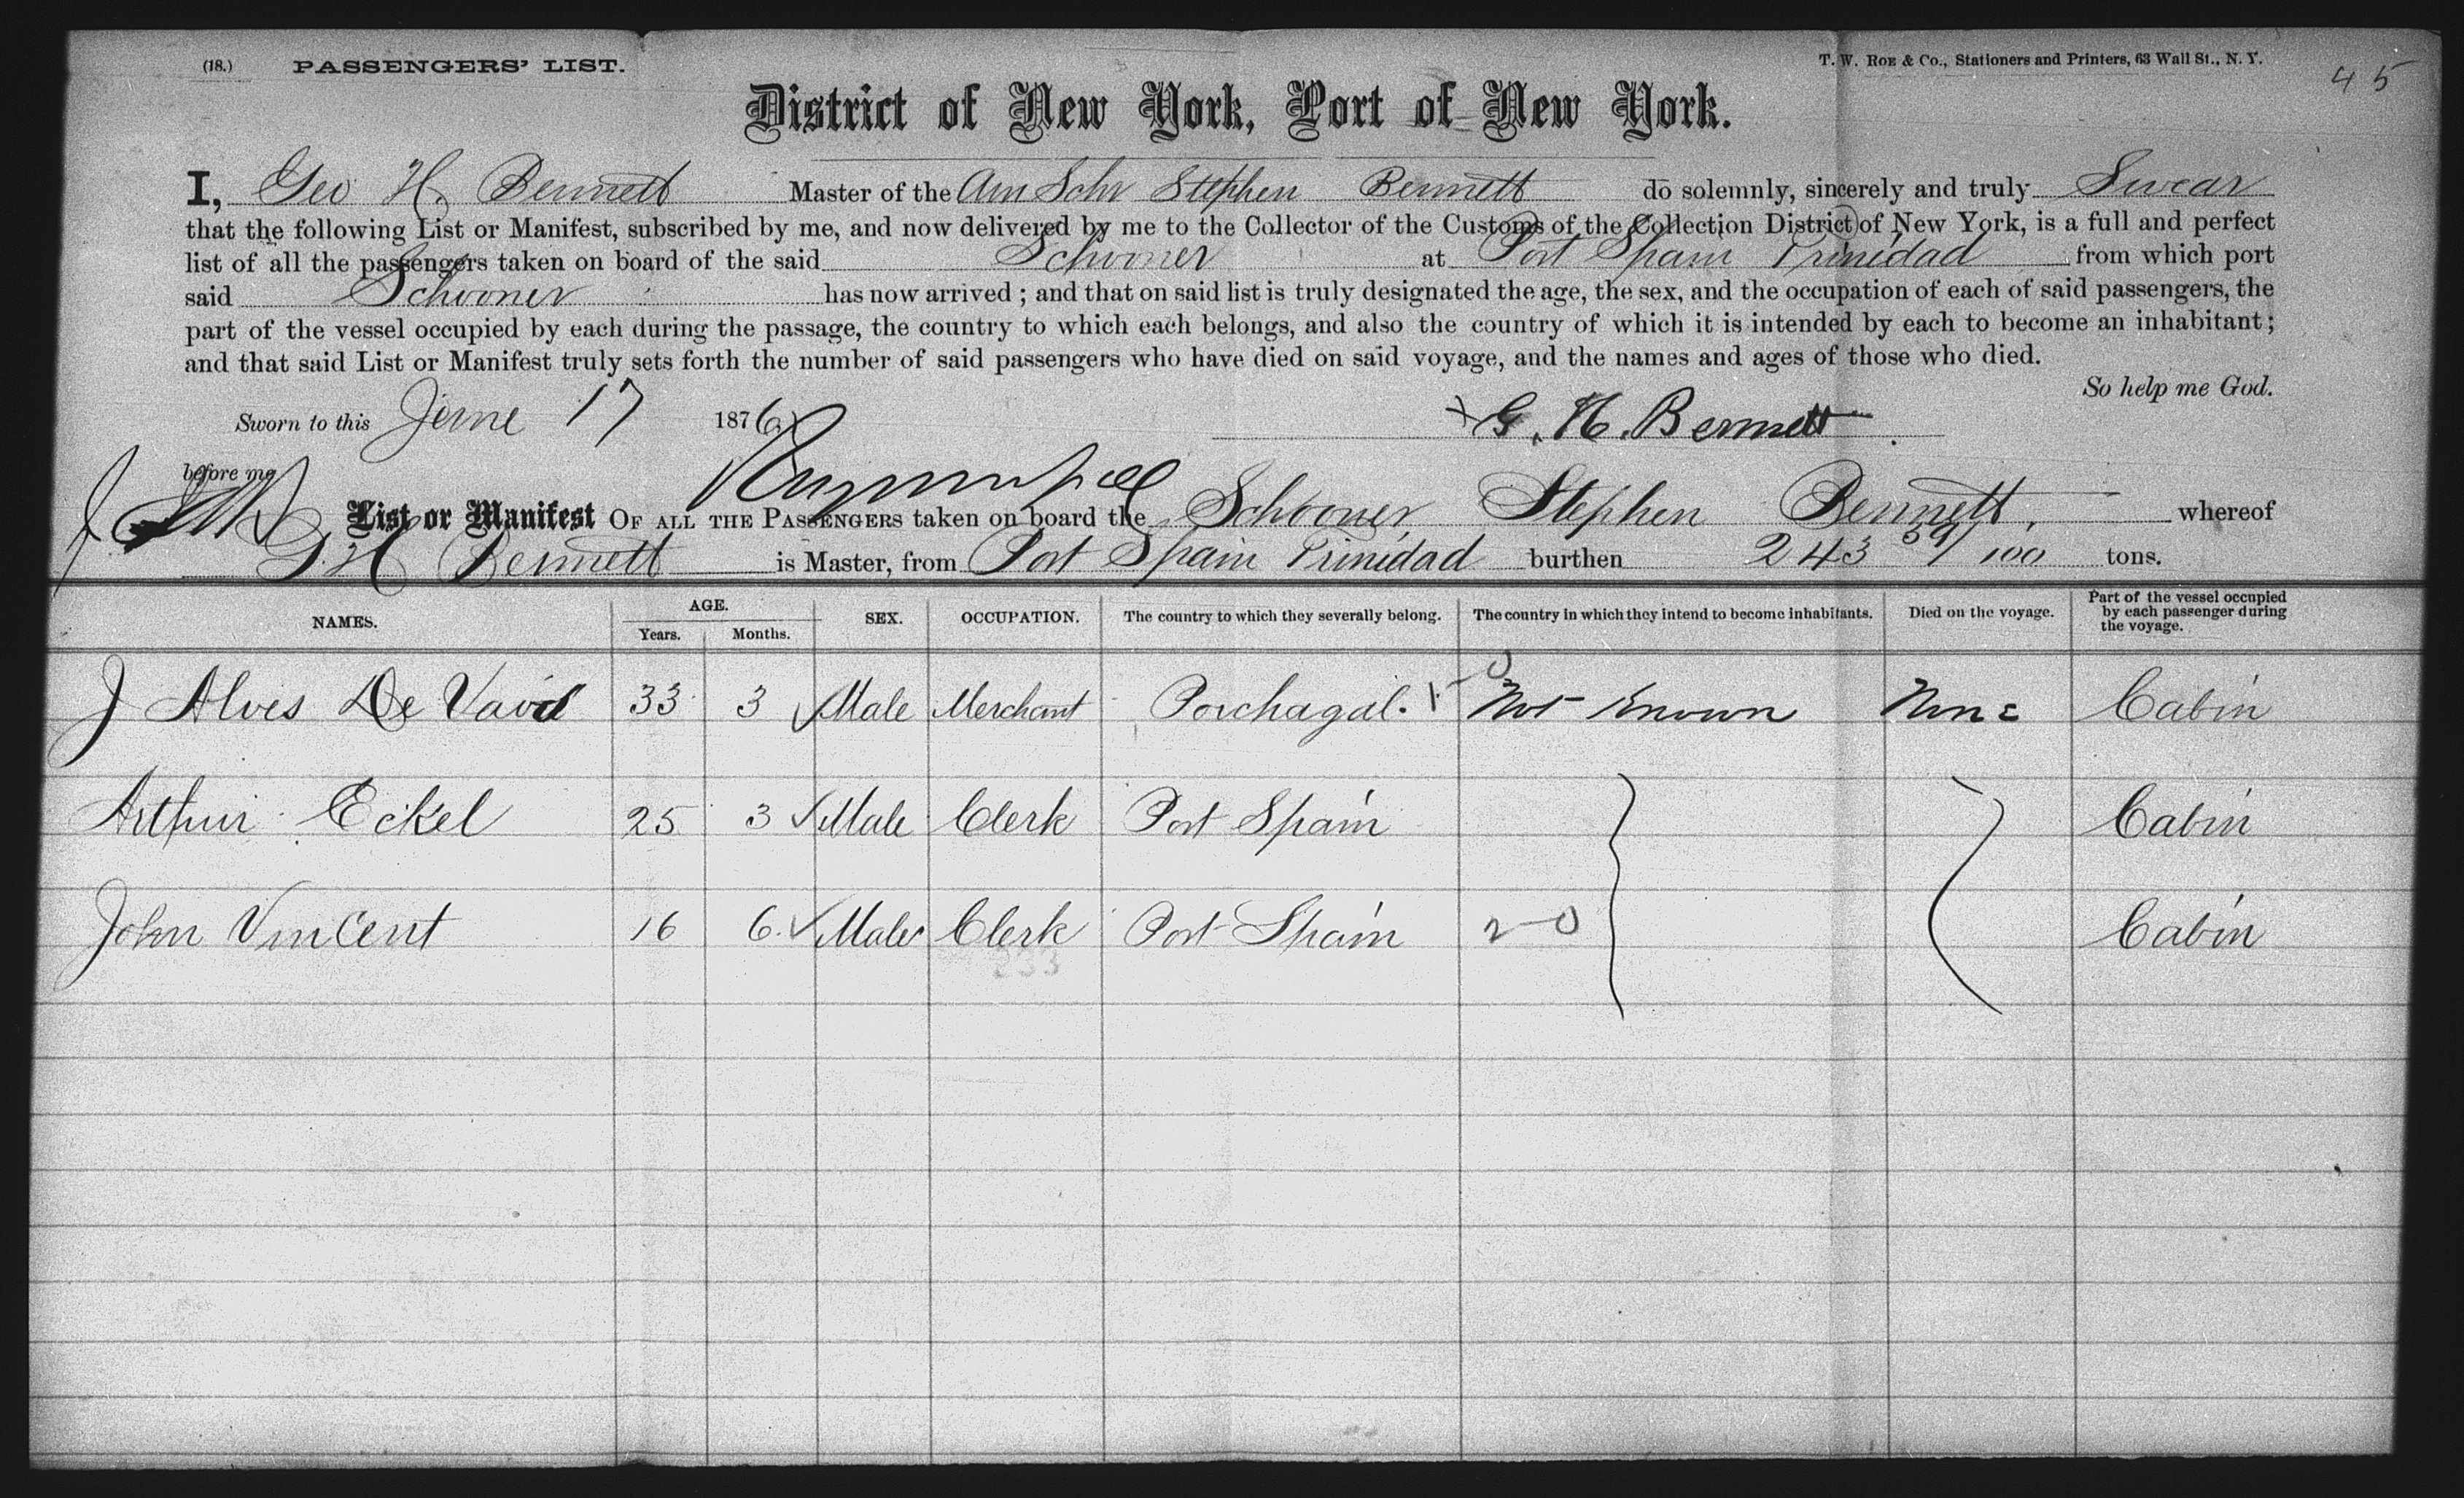 (18.) PASSENGERS' LIST. T. W. ROE & CO., Stationers and Printers, 63 Wall St., N. Y. 45
District of New York, Port of New York.
I, Geo H. Bennett Master of the Am Schr Stephen Bennett do solemnly, sincerely and truly Swear
that the following List or Manifest, subscribed by me, and now delivered by me to the Collector of the Customs of the Collection District of New York, is a full and perfect
list of all the passengers taken on board of the said Schooner at Port Spain Trinidad from which port
said Schooner has now arrived ; and that on said list is truly designated the age, the sex, and the occupation of each of said passengers, the
part of the vessel occupied by each during the passage, the country to which each belongs, and also the country of which it is intended by each to become an inhabitant ;
and that said List or Manifest truly sets forth the number of said passengers who have died on said voyage, and the names and ages of those who died.
So help me God.
Sworn to this June 17 1876 G. H. Bennett
before me
List or Manifest OF ALL THE PASSENGERS taken on board the Schooner Stephen Bennett, whereof
G. H Bennett is Master, from Port Spain Trinidad burthen 243 59/100 tons.
NAMES. AGE. Years. Months. SEX. OCCUPATION. The country to which they severally belong. The country in which they intend to become inhabitants. Died on the voyage. Part of the vessel occupied by each passenger during the voyage.
J Alves De 33 3 Male Merchant Porchagal. 1-0 Not Known None Cabin
Arthur Eckel 25 3 Male Clerk Port Spain Cabin
John Vincent 16 6 Male Clerk Port Spain 2-0 Cabin
233